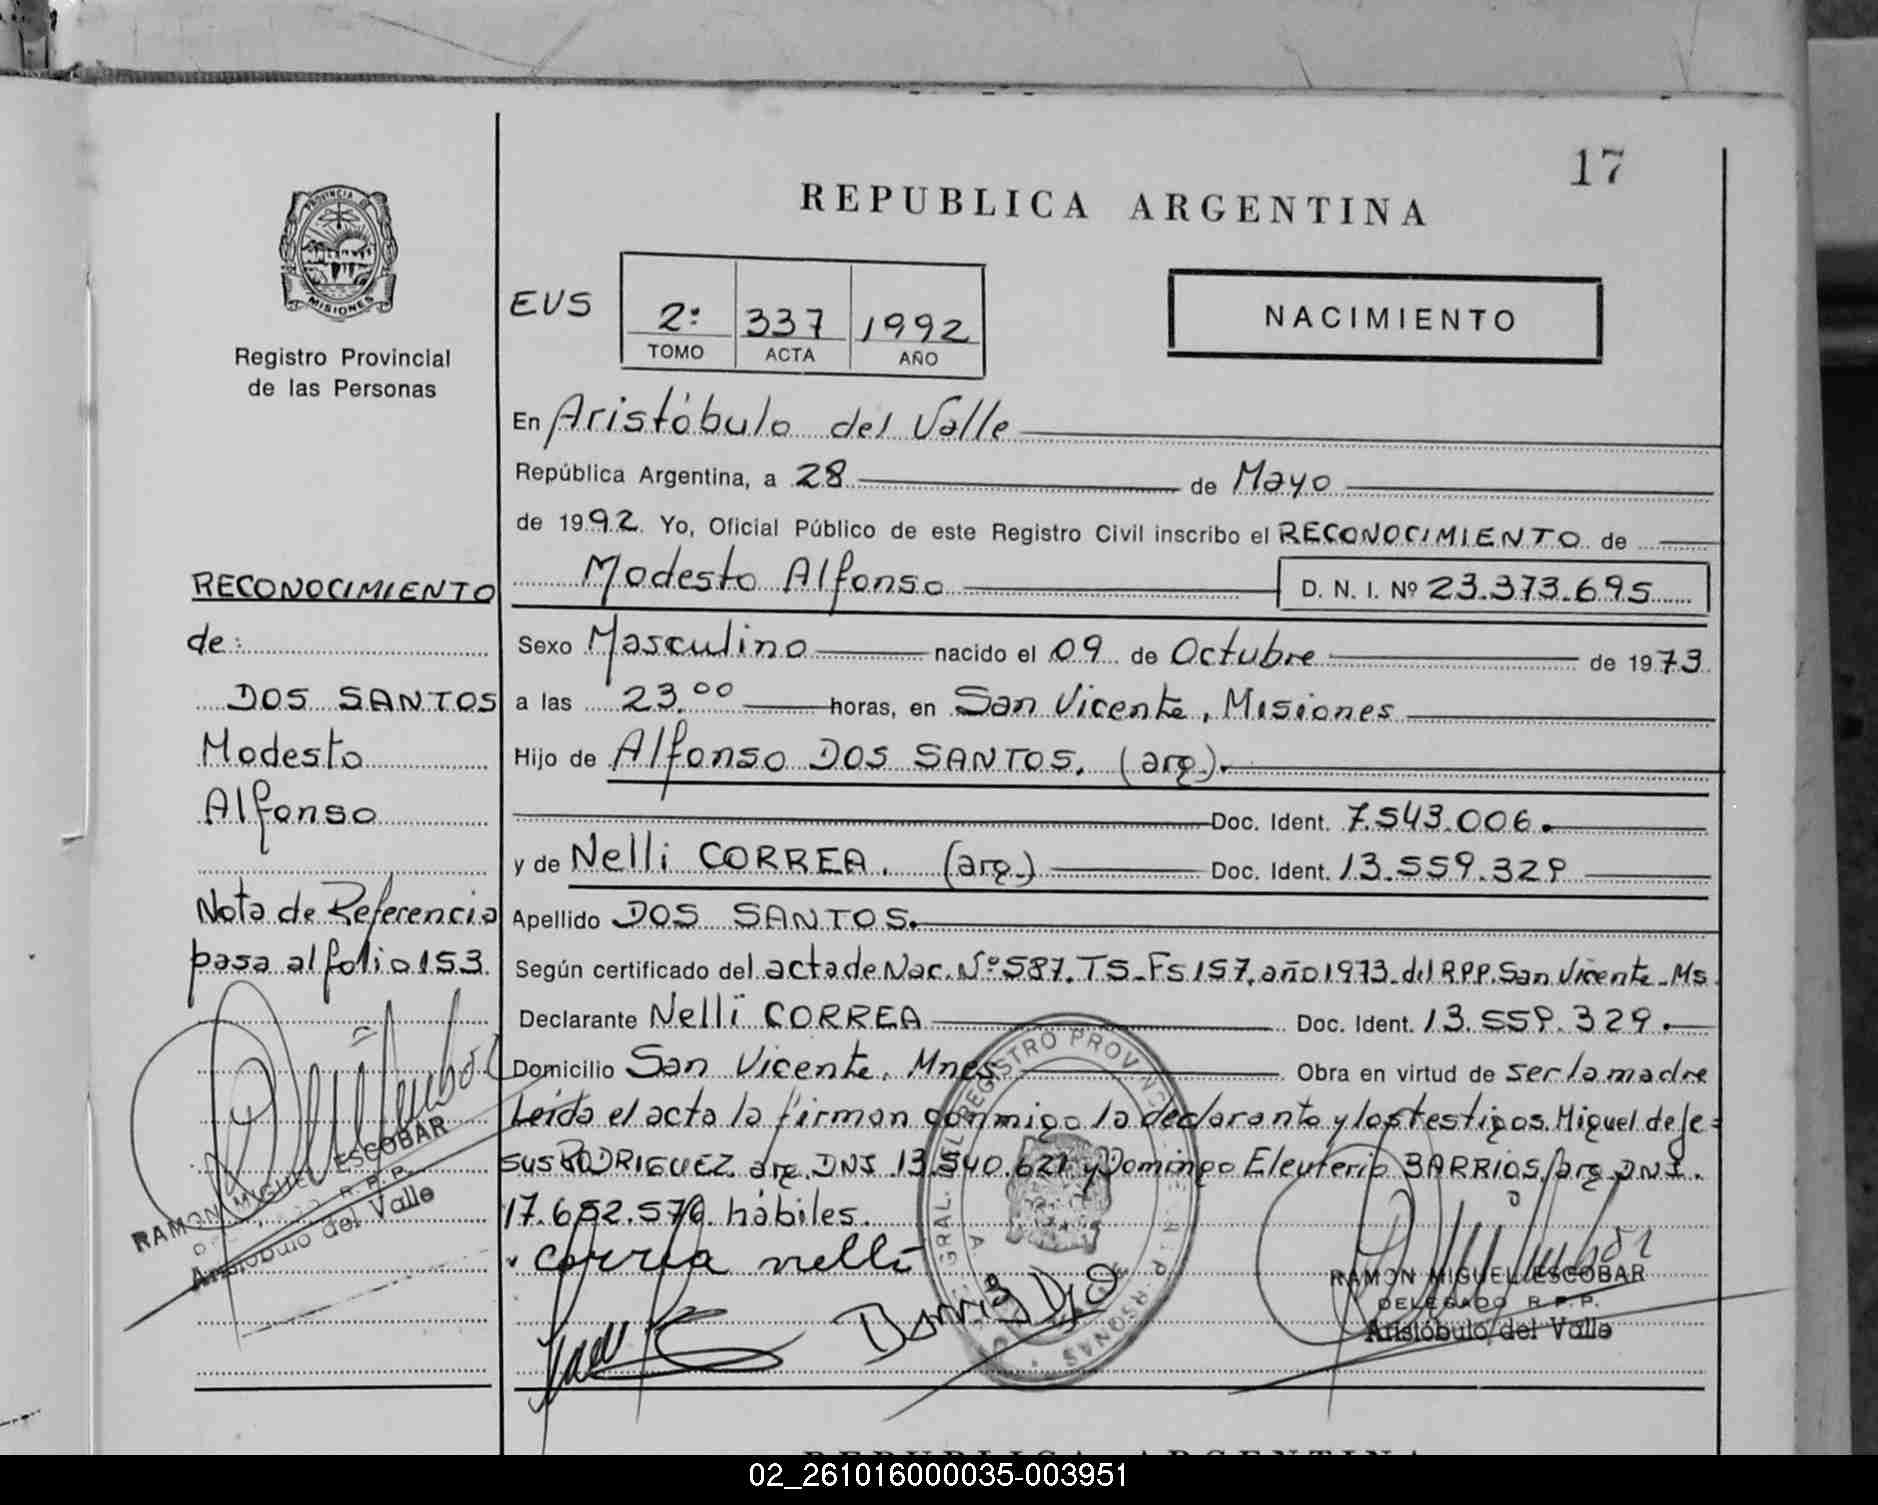 17
REPUBLICA ARGENTINA
PROVINCIA DE
MISIONES
Registro Provincial
de las Personas
EUS
2º 337 1992
TOMO ACTA AÑO
NACIMIENTO
En Aristóbulo del Valle
República Argentina, a 28 de Mayo
de 1992. Yo, Oficial Público de este Registro Civil inscribo el RECONOCIMIENTO de
Modesto Alfonso D. N. I. Nº 23.373.695
Sexo Masculino nacido el 09 de Octubre de 1973
a las 23.00 horas, en San Vicente, Misiones
Hijo de Alfonso DOS SANTOS. (arg.).
Doc. Ident. 7.543.006.
y de Nelli CORREA. (arg.) Doc. Ident. 13.559.329
Apellido DOS SANTOS.
Según certificado del acta de Nac. Nº 587. T5- Fs 157. año 1973. del RPP. San Vicente- Ms.
Declarante Nelli CORREA Doc. Ident. 13.559.329.
Domicilio San Vicente. Mnes Obra en virtud de ser la madre
Leída el acta la firman conmigo la declarante y los testigos. Miguel de Je=
sus RODRIGUEZ. arg. DNI. 13.540.621 y Domingo Eleuterio BARRIOS, arg. DNI.
17.652.570. hábiles.
Correa nelli
RAMON MIGUEL ESCOBAR
DELEGADO R.P.P.
Aristóbulo del Valle
RECONOCIMIENTO
de:
DOS SANTOS
Modesto
Alfonso
Nota de Referencia
pasa al folio 153.
RAMON MIGUEL ESCOBAR
DELEGADO R.P.P.
Aristóbulo del Valle
REPUBLICA ARGENTINA
02_261016000035-003951